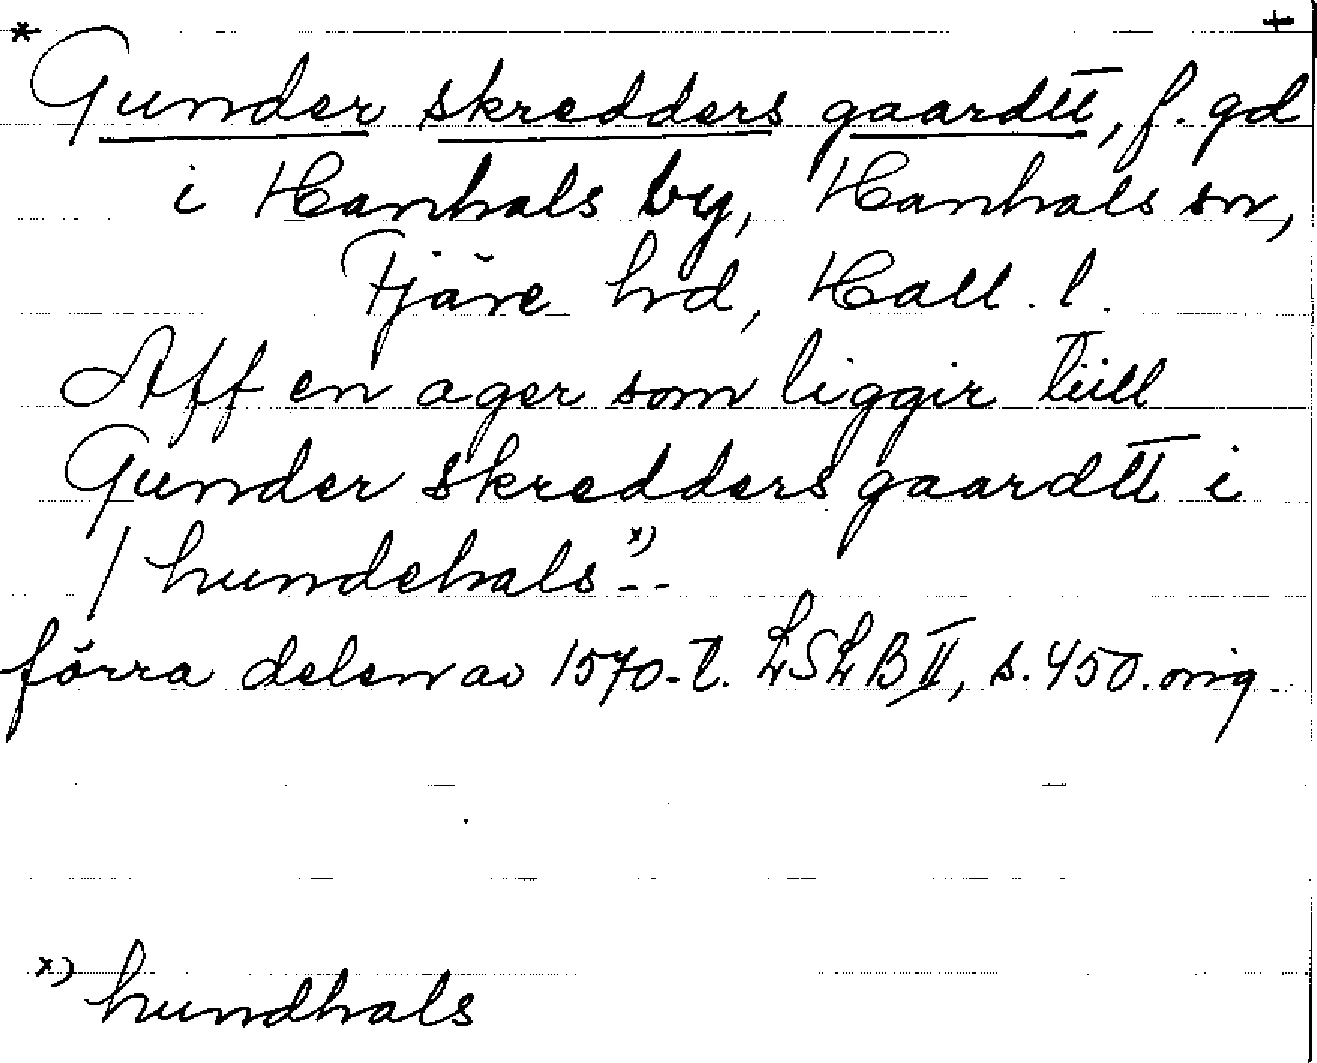 * +
Gunder skredders gaardtt, f. gd
i Hanhals by, Hanhals sn,
Fjäre hd, Hall. l.
Aff en ager som liggir tiill
Gunder skredders gaardtt i
/ hundehals x) --
förra delen av 1570-t. LSLB II, s. 450. orig.
x) hundhals